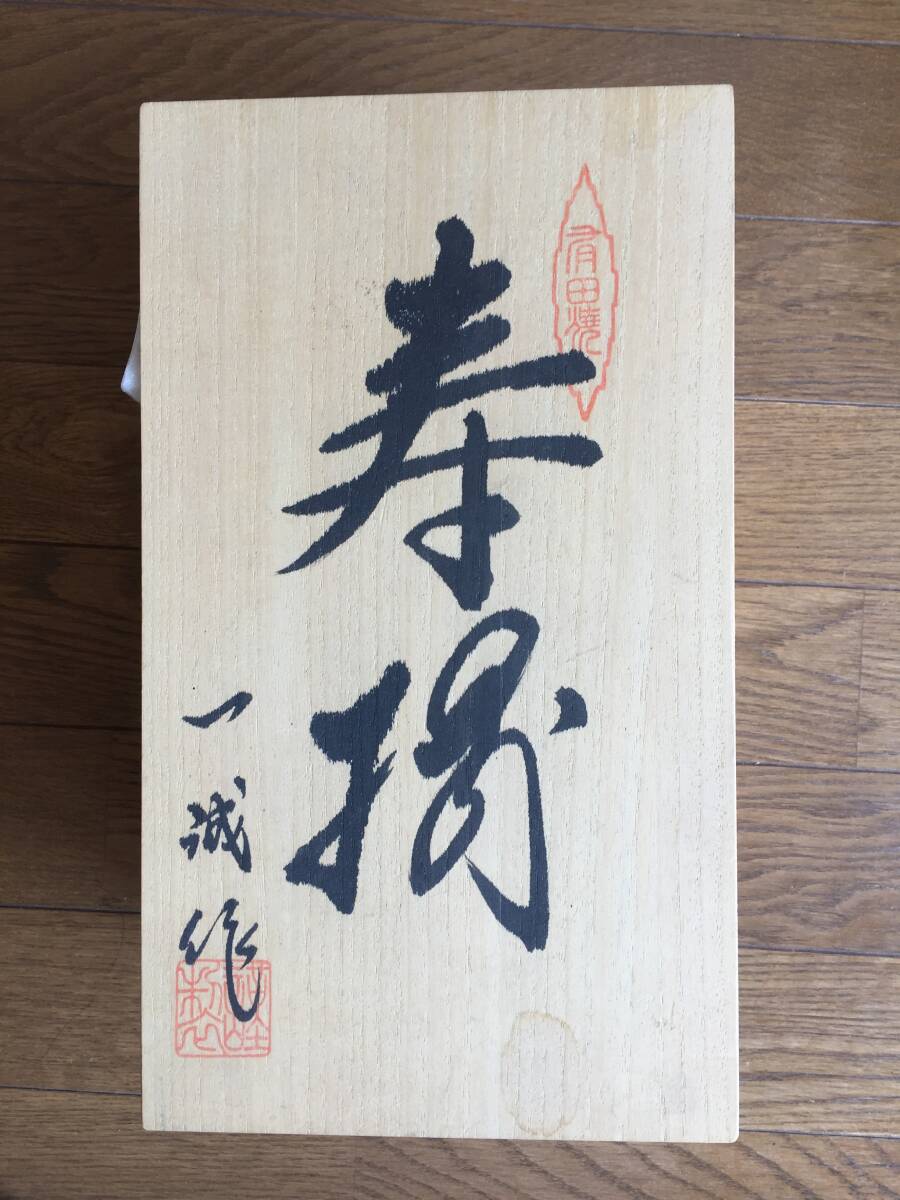 有田焼
寿揃
一誠作